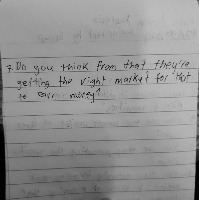 7. Do you think from that they're
getting the right market for that
to earn money?